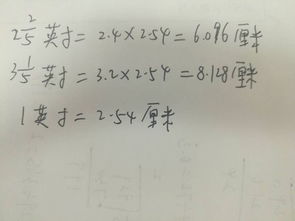 2 2/5 英寸 = 2.4 × 2.54 = 6.096 厘米
3 1/5 英寸 = 3.2 × 2.54 = 8.128 厘米
1 英寸 = 2.54 厘米